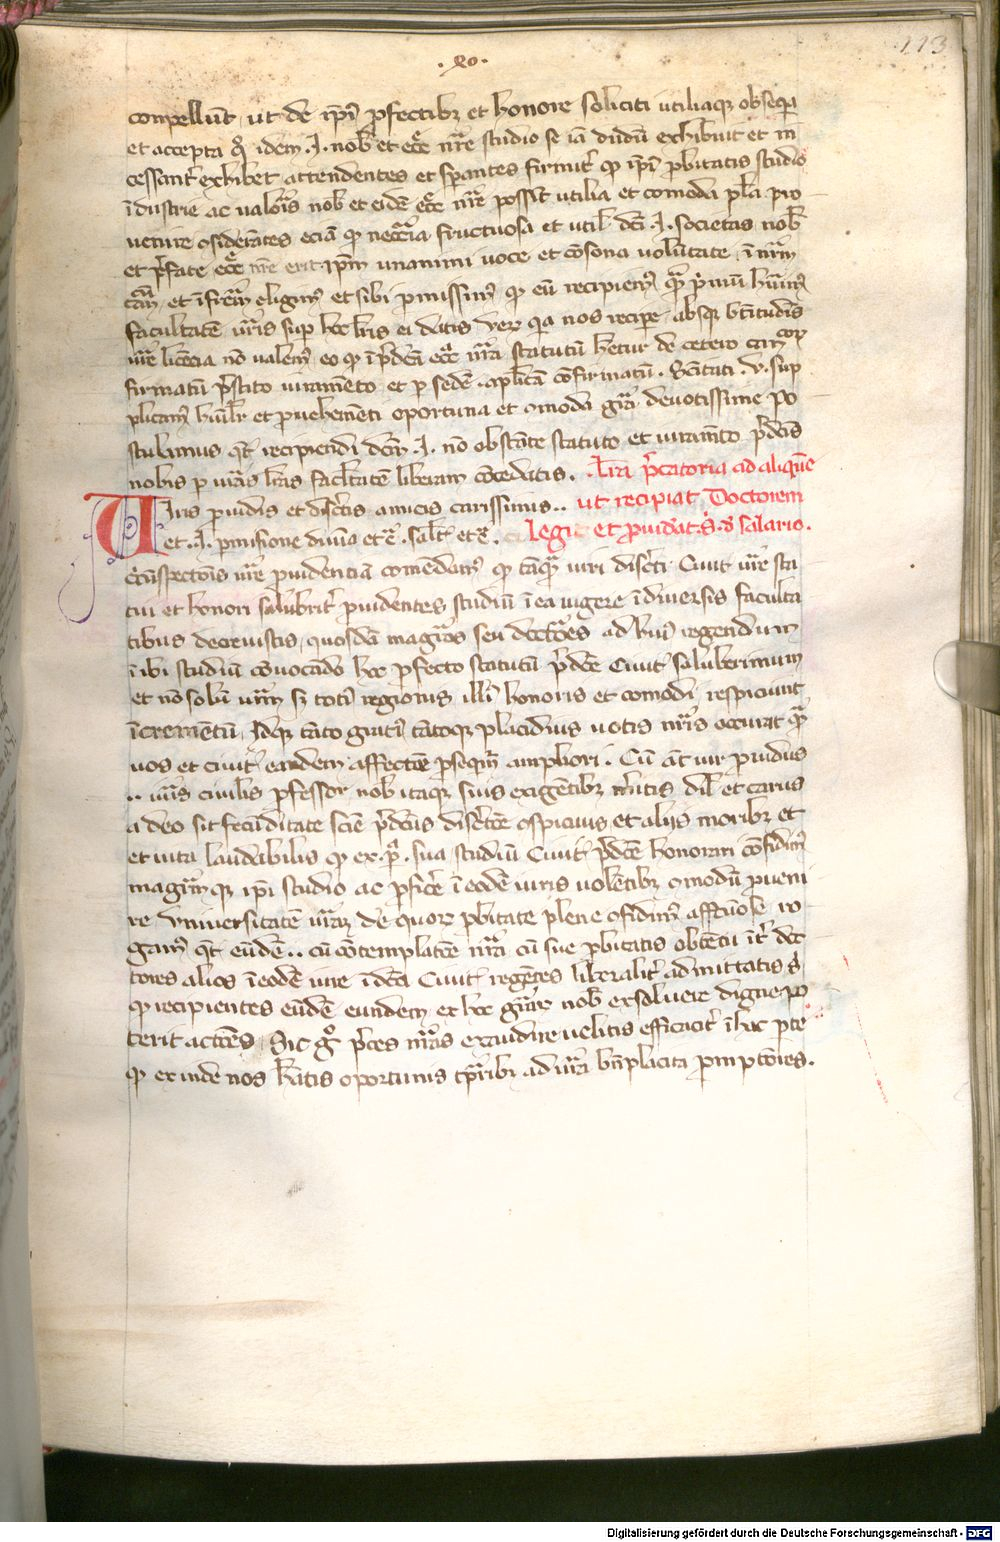 113
.xv.
compellūt, ut de ip̄i ꝓfectibꝫ et honore soliciti utiliaqꝫ obseqͥa
et accepta idem .J. nob̄ et ecc̄e nr̄e studio se iā dudū exhibuit et in
cessant̄ exhibet attendentes et sꝑantes firmit̄ ꝙ ip̄i ꝓbitatis studio
īdustrie ac valoris nob̄ et eidē ecc̄e nr̄e possīt utilia et comoda pl̄a pro
uenire ꝯsiderātes eciā ꝙ necc̄ia fructuosa et util̄ dc̄i .J. societas nob̄
et p̄fate ecc̄e nr̄e erit ip̄m unanimi uoce et cōsona uolūtate, ī nr̄m
et ī fr̄em eligimꝰ et sibi ꝓmissimꝰ ꝙ eū recipiemꝰ
facultatē ur̄is suꝑ hoc lr̄is ei datis Verꝫ qͥa nos recipe absqꝫ btitudīs
ur̄e licēcia nō valemꝰ eo ꝙ ī p̄dc̄a ecc̄a nr̄a statutū hetur de cetero
firmatū p̄stito iuramēto et ꝑ sedē aplicā cōfirmatū. Sc̄itati .v. sup
plicamꝰ hūil̄r et ꝓuehemēti oportuna et ꝯmoda gr̄a deuotissime po
stulamus qͣt̄ recipiendi dcm̄ .J. nō obstāte statuto et iuramēto p̄dc̄is
nobis ꝑ ur̄as lr̄as facl̄tatē liberam cōcedatis. Lr̄a p̄catoria ad aliquē
Uiris ꝓuidis et discr̄tis amicis carissimis.. ut recipiat Doctorem
et .J. ꝑmissione diuīa etc̄. salt̄ etc̄. Legū et ꝓuideat s. d salario.
Circūspectōis ur̄e ꝓuidenciā comēdamꝰ ꝙ tāqͣꝫ uiri discr̄ti Ciuit̄ ur̄e sta
tui et honori salubrit̄ ꝓuidentes studiū ī ea uigere ī diuersis faculta
tibus decreuistis, quosdā magr̄os seu doctores ad huiꝰ regendum
īibi studiū cōuocādo hoc ꝓfecto statutū p̄dc̄e Ciuit̄ saluberimum
et nō solū ur̄m sꝫ totiꝰ regionis illiꝰ honoris et comodi respiciunt
īcremētū, Idqꝫ tāto gratiꝰ tātoqꝫ placidius uotis nr̄is occurit qͣꝫ
uos et ciuit̄ eandem affectōe ꝓsequimꝰ ampliori. Cū at̄ uir ꝓuidus
.. iuris ciuilis ꝓfessor nob̄ itaqꝫ suis exigētibꝫ m̄itis dil̄ et carus
adeo sit fecūditate sciē p̄dc̄us discr̄cōe ꝯspicuus et alijs moribꝫ et
et uita laudabilis ꝙ ex p̄. sua studiū Ciuit̄ p̄dc̄e honorari cōfidimꝰ
magnūqꝫ ip̄i studio ac ꝓficer̄ ī eodē iuris uolētibꝫ ꝯmodū ꝓueni
re Vniuersitatē ur̄aꝫ de quoꝝ ꝓbitate plene ꝯfidimꝰ affc̄uose ro
gamꝰ qͣt̄ eūdē .. cū cōtemplatōe nr̄a cū sue ꝓbitatis obtētu īt̄ doc
tores alios ī eodē iure ī dc̄a Ciuit̄ regētes liberalit̄ admittatis
ꝙ recipientes eūdē eundem ex hoc nob̄ exsoluere digne po
terit actōes, Sic gͦ p̄ces nr̄as exaudire uelitis efficacit̄ ī hac ꝑte
ꝙ exinde nos hēatis oportunis tꝑibꝫ ad ur̄a bn̄placita ꝓmptōres.
Digitalisierung gefördert durch die Deutsche Forschungsgemeinschaft - DFG